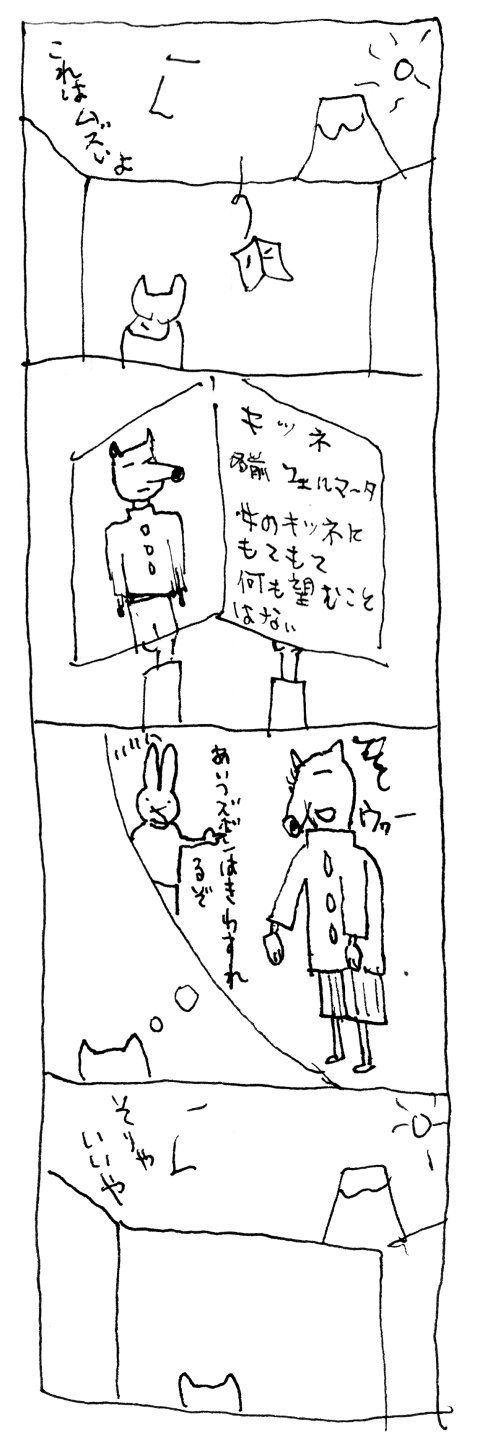 これは
ムズいよ
キツネ
名前 フェルマータ
メスのキツネに
もてもて
何も望むこと
はない
あいつズボンはきわすれ
るぞ
ウワー
そりゃ
いいや